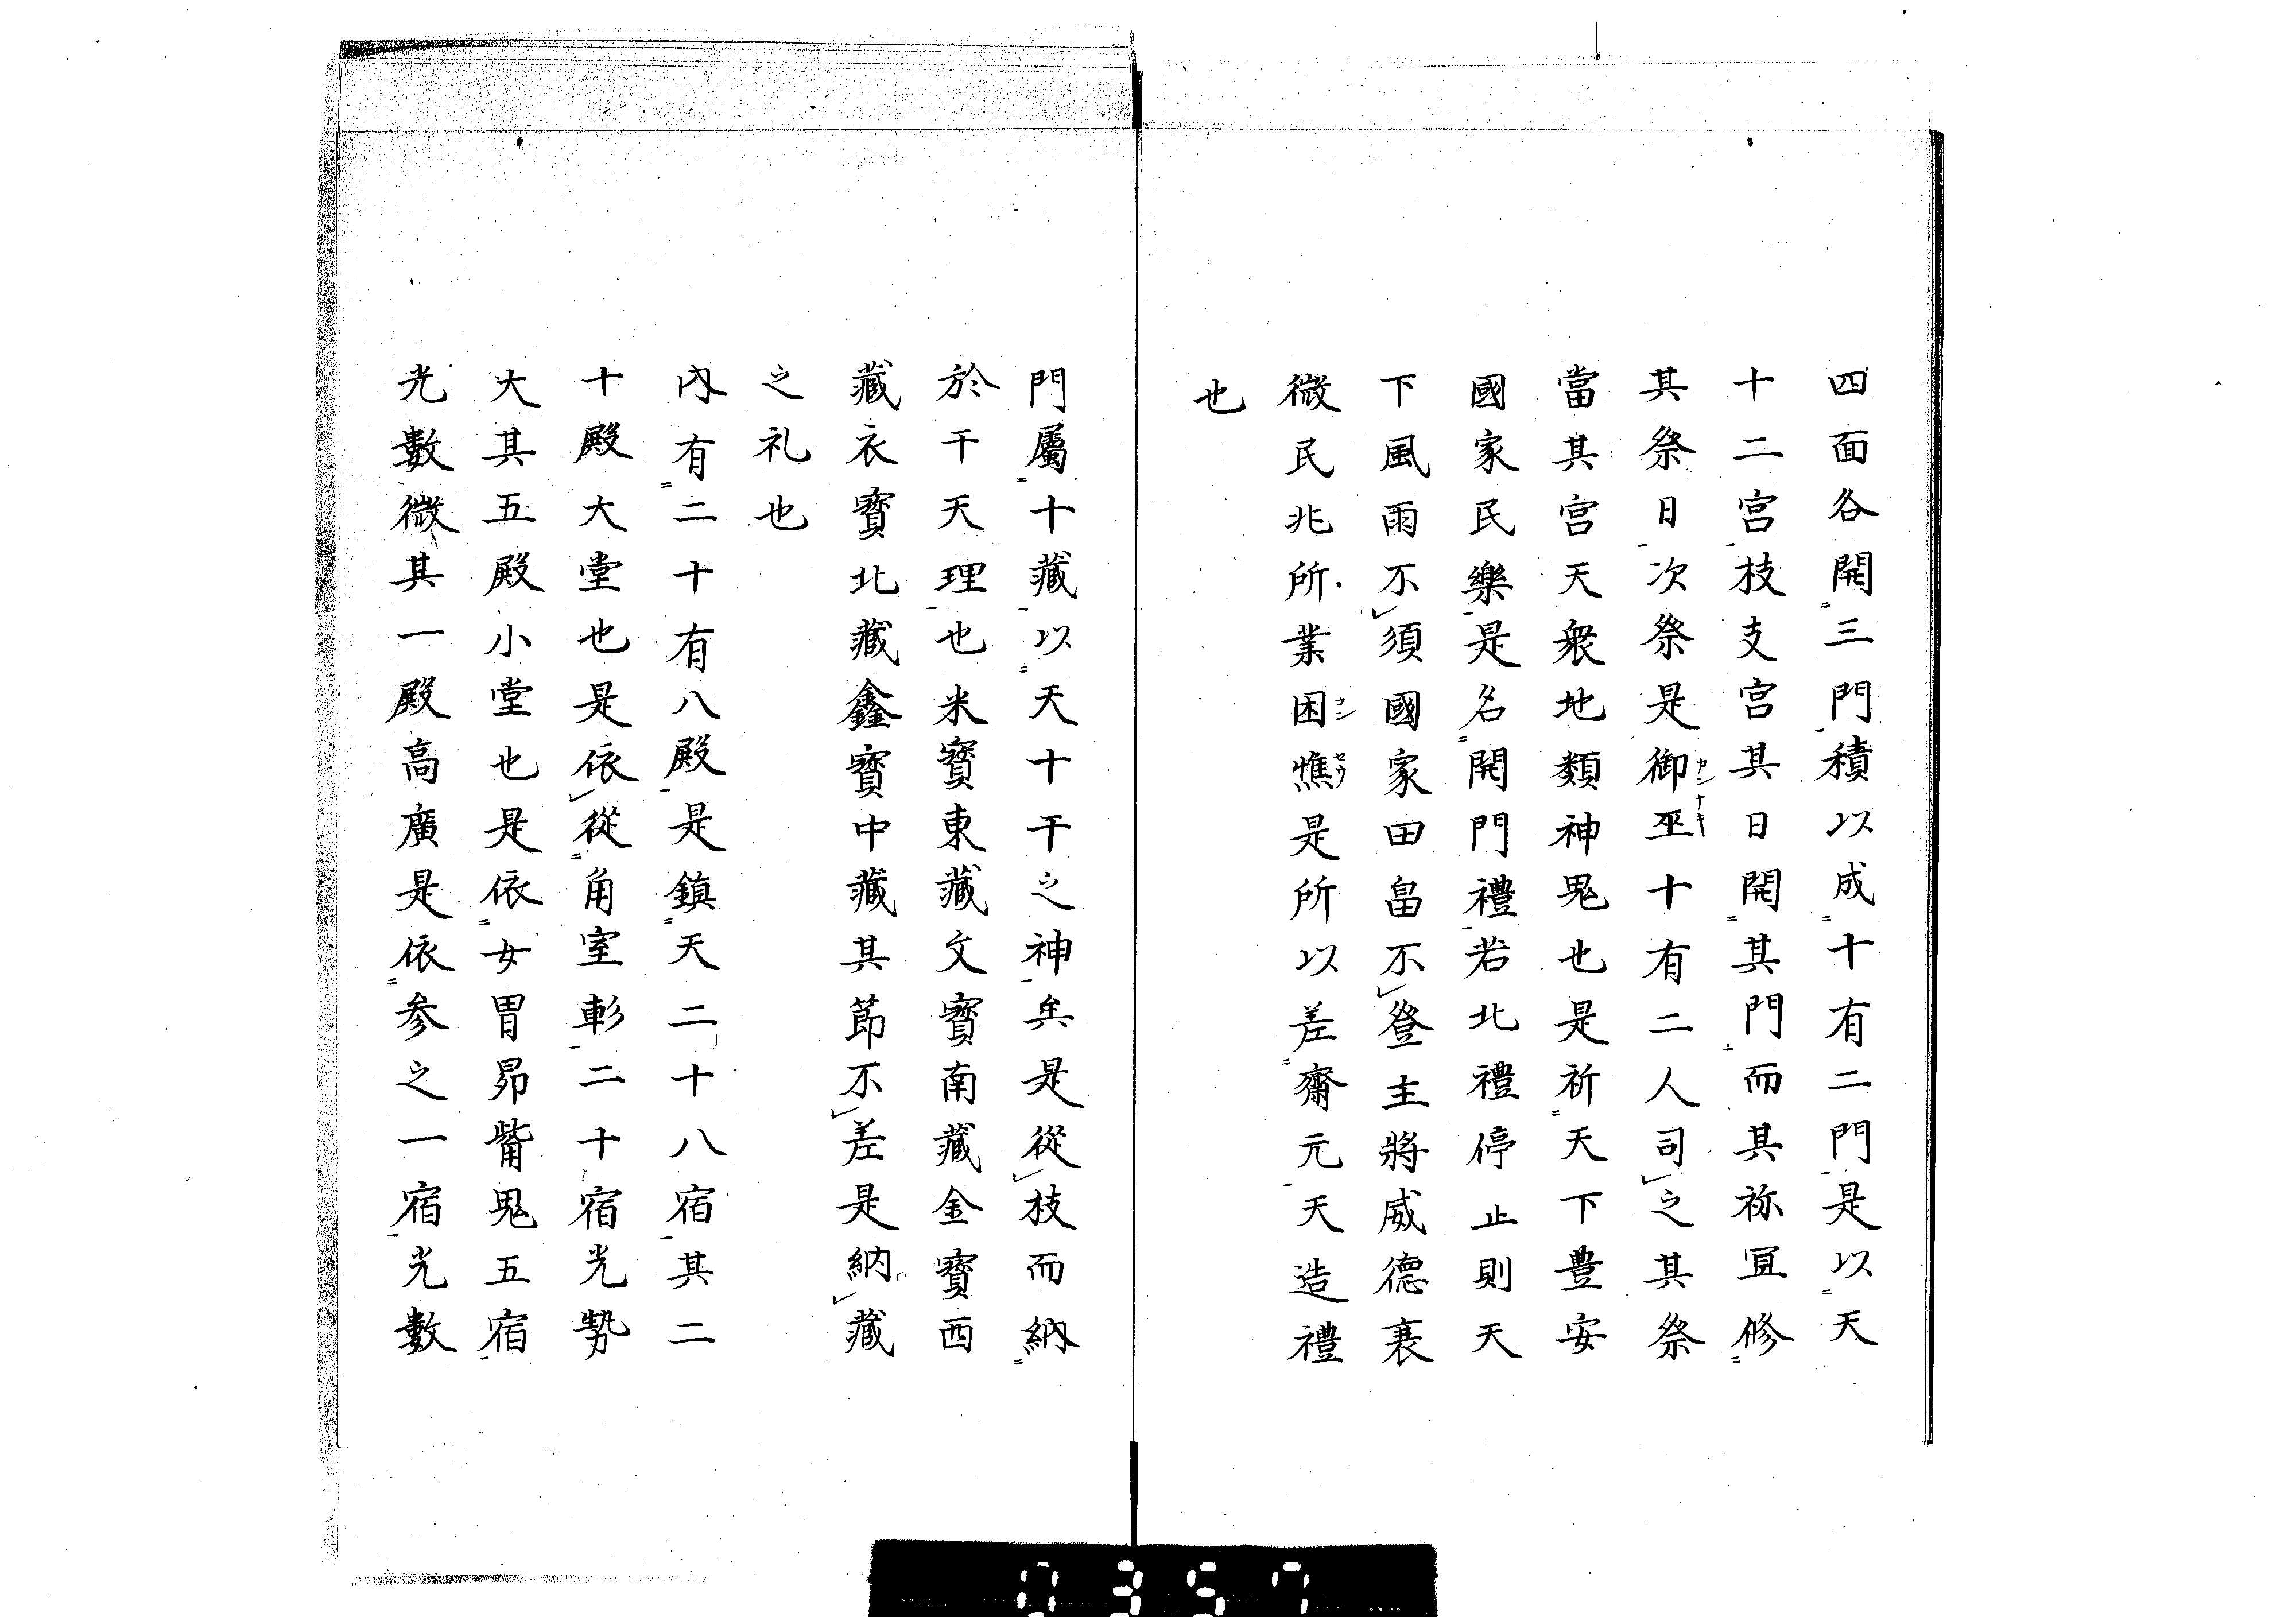 四面各開三門積以成十有二門是以天
十二宮枝支宮其日開其門而其祢宜修
其祭日次祭是御巫十有二人司之其祭
カンナキ
當其宮天衆地類神鬼也是祈天下豊安
國家民樂是名開門禮若北禮停止則天
下風雨不須國家田畠不登主將威德衰
微民兆所業困憔是所以差齋元天造禮
コン
セウ
也
門屬十藏以天十干之神矣是從枝而納
於干天理也米寳東藏文寳南藏金寳西
藏衣寳北藏鑫寳中藏其節不差是納藏
之礼也
內有二十有八殿是鎮天二十八宿其二
十殿大堂也是依從角室軫二十宿光勢
大其五殿小堂也是依女胃昴觜鬼五宿
光數微其一殿高廣是依参之一宿光數
0357